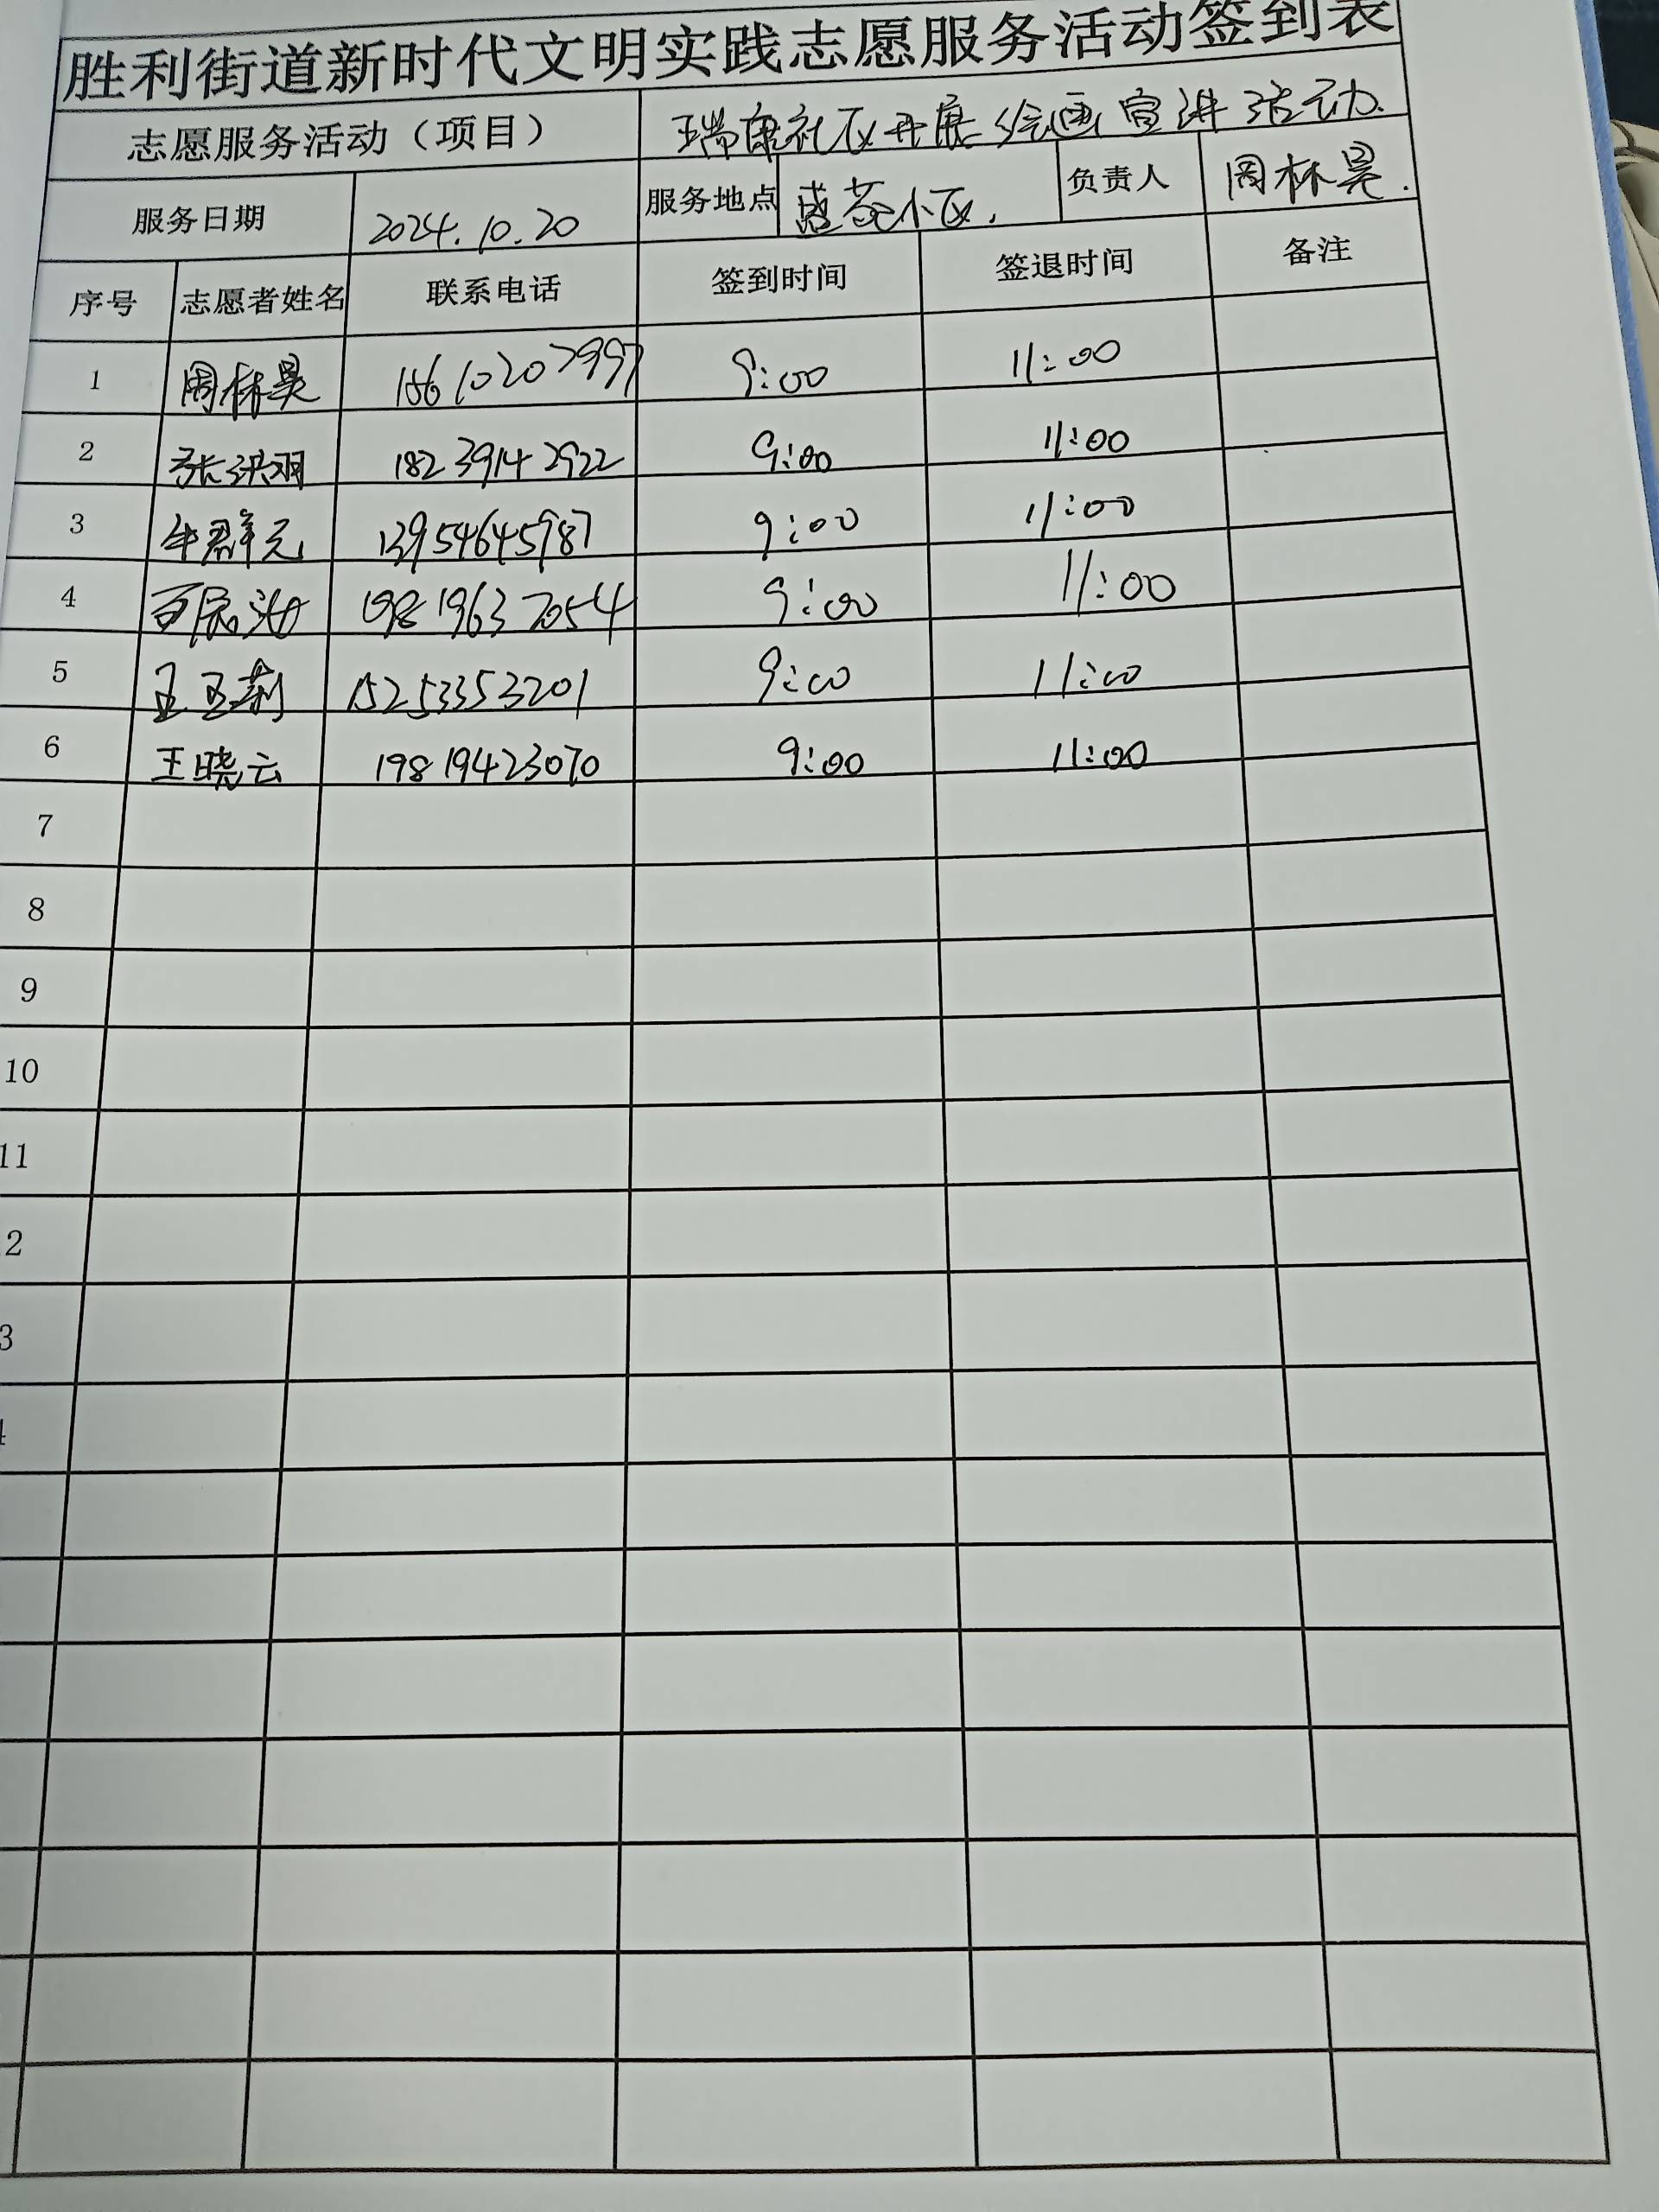 胜利街道新时代文明实践志愿服务活动签到表
志愿服务活动（项目） 瑞康社区开展绘画宣讲活动.
服务日期 2024.10.20 服务地点 盛苑小区. 负责人 周林昊.
序号 志愿者姓名 联系电话 签到时间 签退时间 备注
1 周林昊 15610207997 9:00 11:00
2 张洪羽 18239142922 9:00 11:00
3 牛群元 13954645987 9:00 11:00
4 19819637054 9:00 11:00
5 15253353201 9:00 11:00
6 王晓云 19819423070 9:00 11:00
7
8
9
10
11
2
3
4